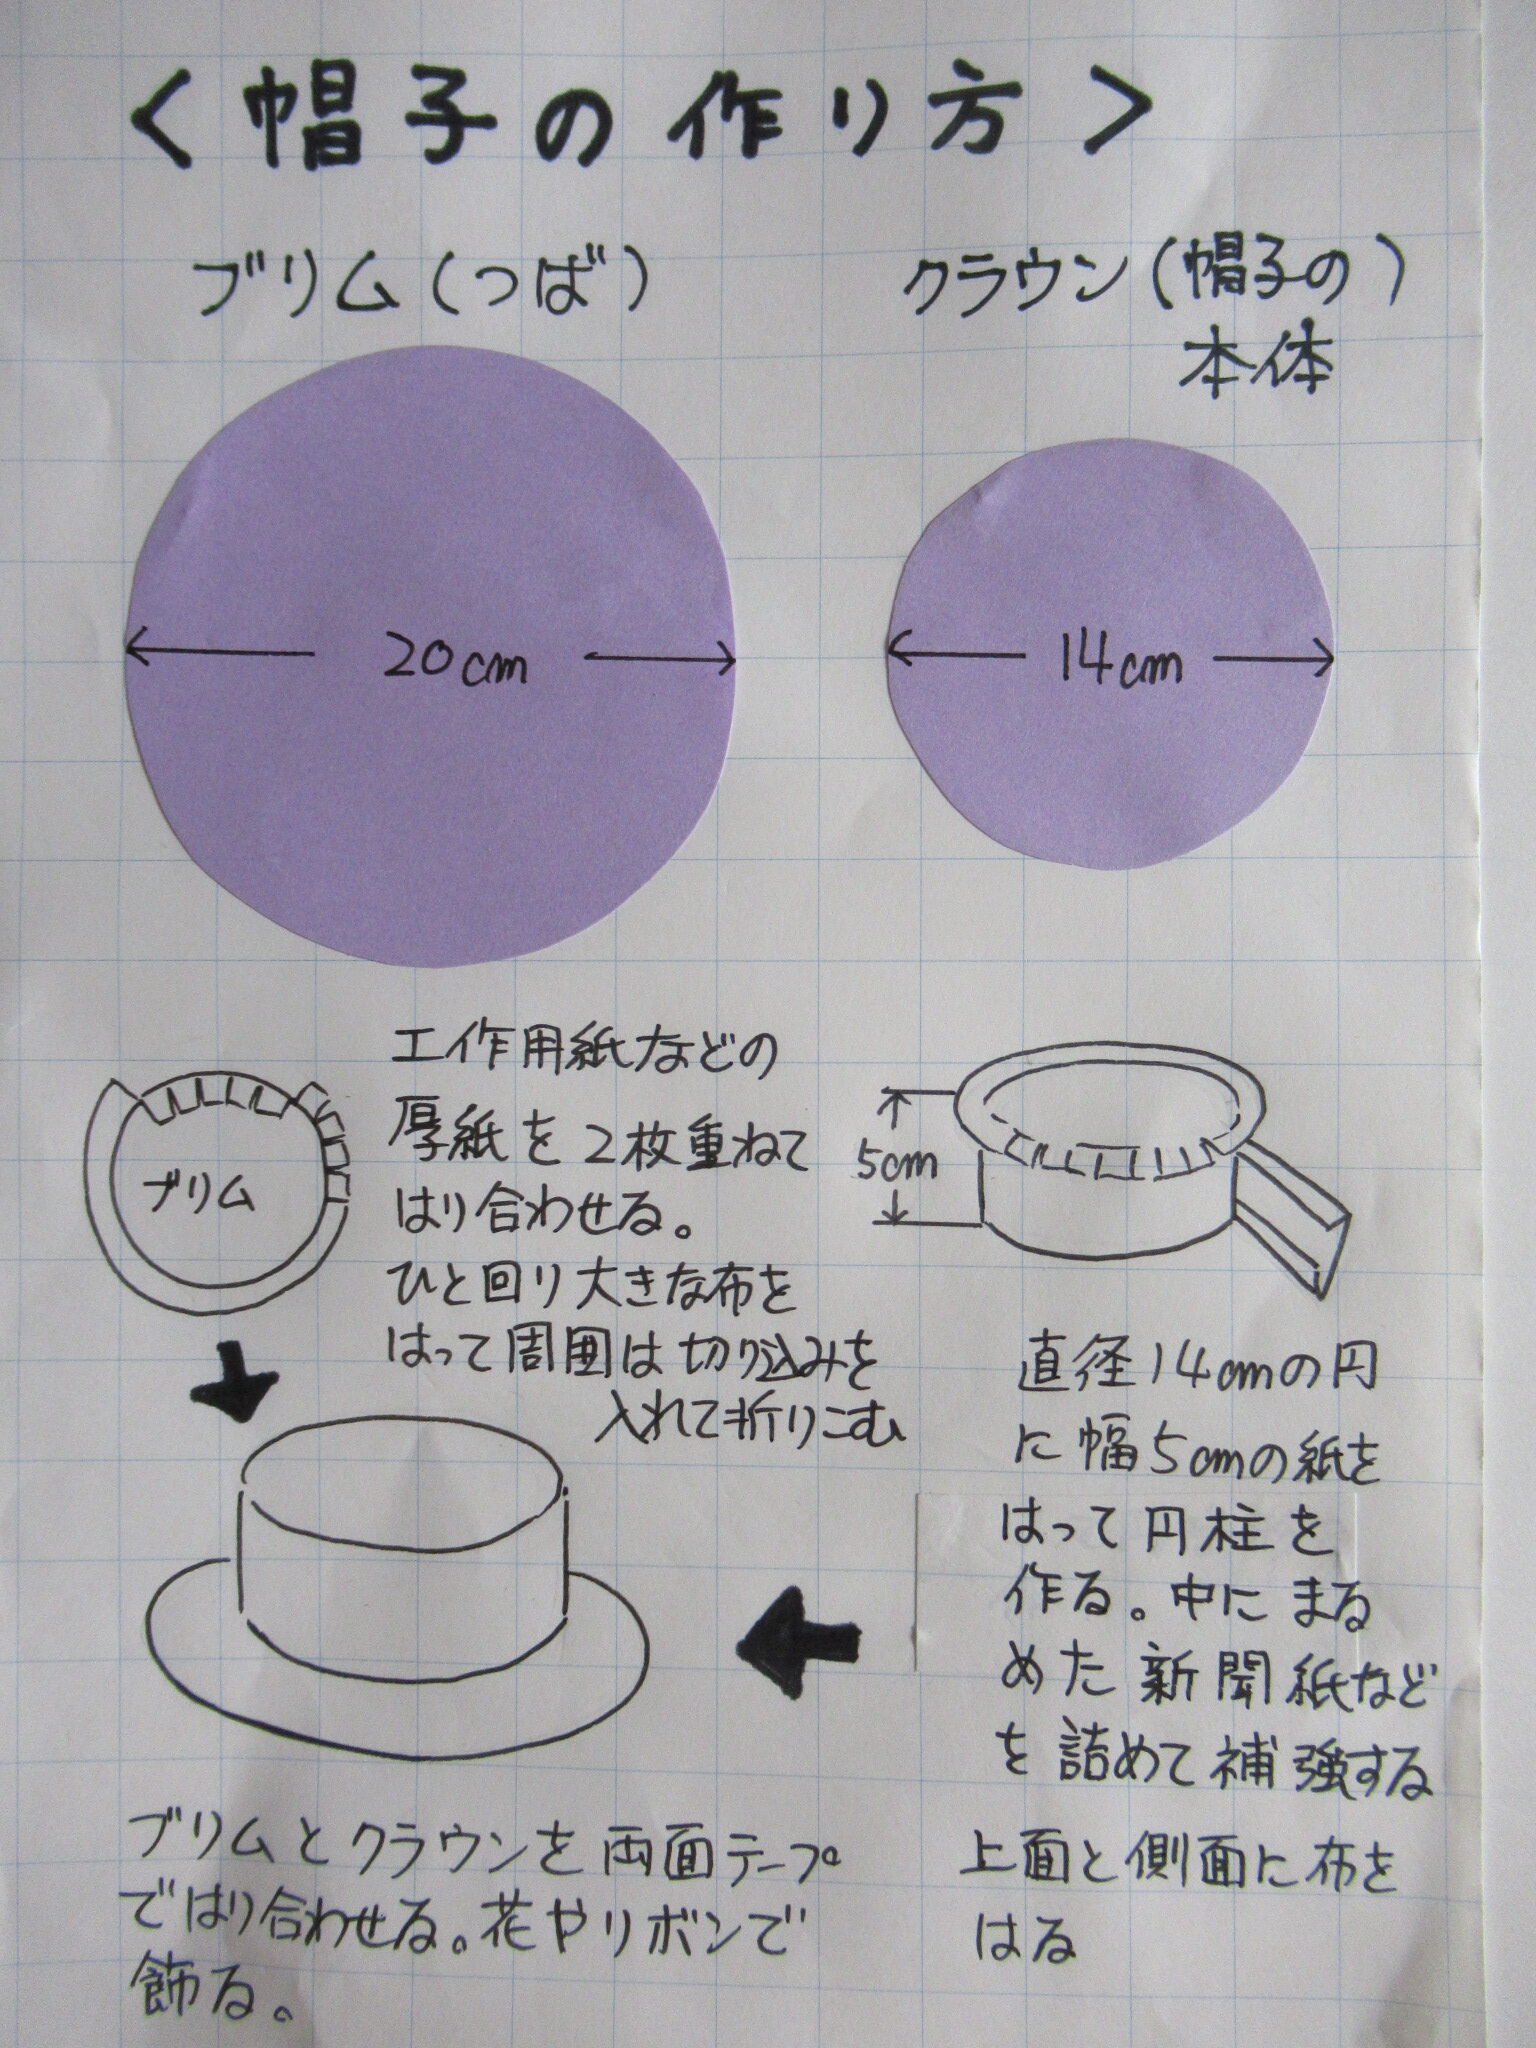 <帽子の作り方>
ブリム(つば)
クラウン(帽子の)
本体
20cm
14cm
ブリム
工作用紙などの
厚紙を2枚重ねて
はり合わせる。
ひと回り大きな布を
はって周囲は切り込みを
入れて折りこむ
5cm
直径14cmの円
に幅5cmの紙を
はって円柱を
作る。中にまる
めた新聞紙など
を詰めて補強する
上面と側面に布を
はる
ブリムとクラウンを両面テープ
ではり合わせる。花やリボンで
飾る。